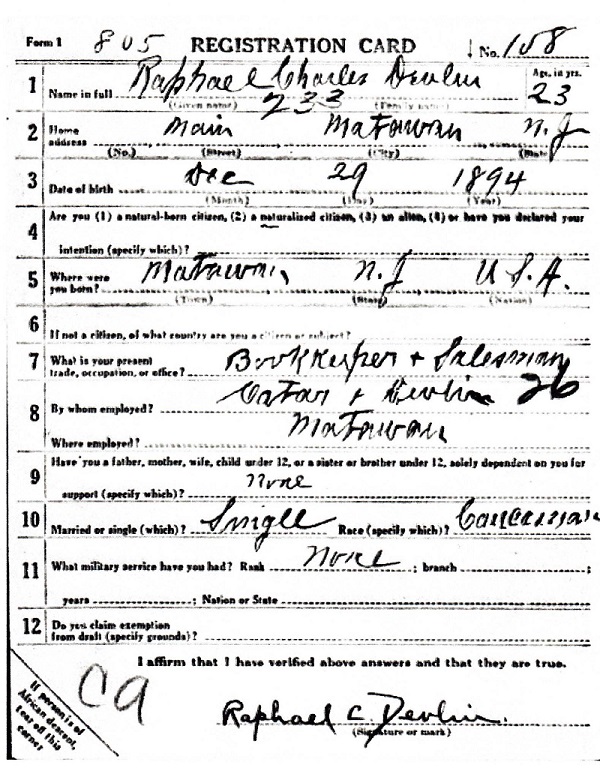 Form 1 805 REGISTRATION CARD No. 158
1 Name in full Raphael Charles Devlin Age, in yrs. 23
(Given name) 233 (Family name)
2 Home address Main Matawan N.J
(No.) (Street) (City) (State)
3 Date of birth Dec 29 1894
(Month) (Day) (Year)
4 Are you (1) a natural-born citizen, (2) a naturalized citizen, (3) an alien, (4) or have you declared your
intention (specify which)?
5 Where were you born? Matawan, N.J U.S.A.
(Town) (State) (Nation)
6 If not a citizen, of what country are you a citizen or subject?
7 What is your present trade, occupation, or office? Bookkeeper + Salesman
8 By whom employed? & Devlin 26
Where employed? Matawan
9 Have you a father, mother, wife, child under 12, or a sister or brother under 12, solely dependent on you for
support (specify which)? none
10 Married or single (which)? Single Race (specify which)? Caucasian
11 What military service have you had? Rank none ; branch ;
years ; Nation or State
12 Do you claim exemption
from draft (specify grounds)?
I affirm that I have verified above answers and that they are true.
If person is of
African descent,
tear off this
corner
Ca
Raphael C. Devlin.
(Signature or mark)